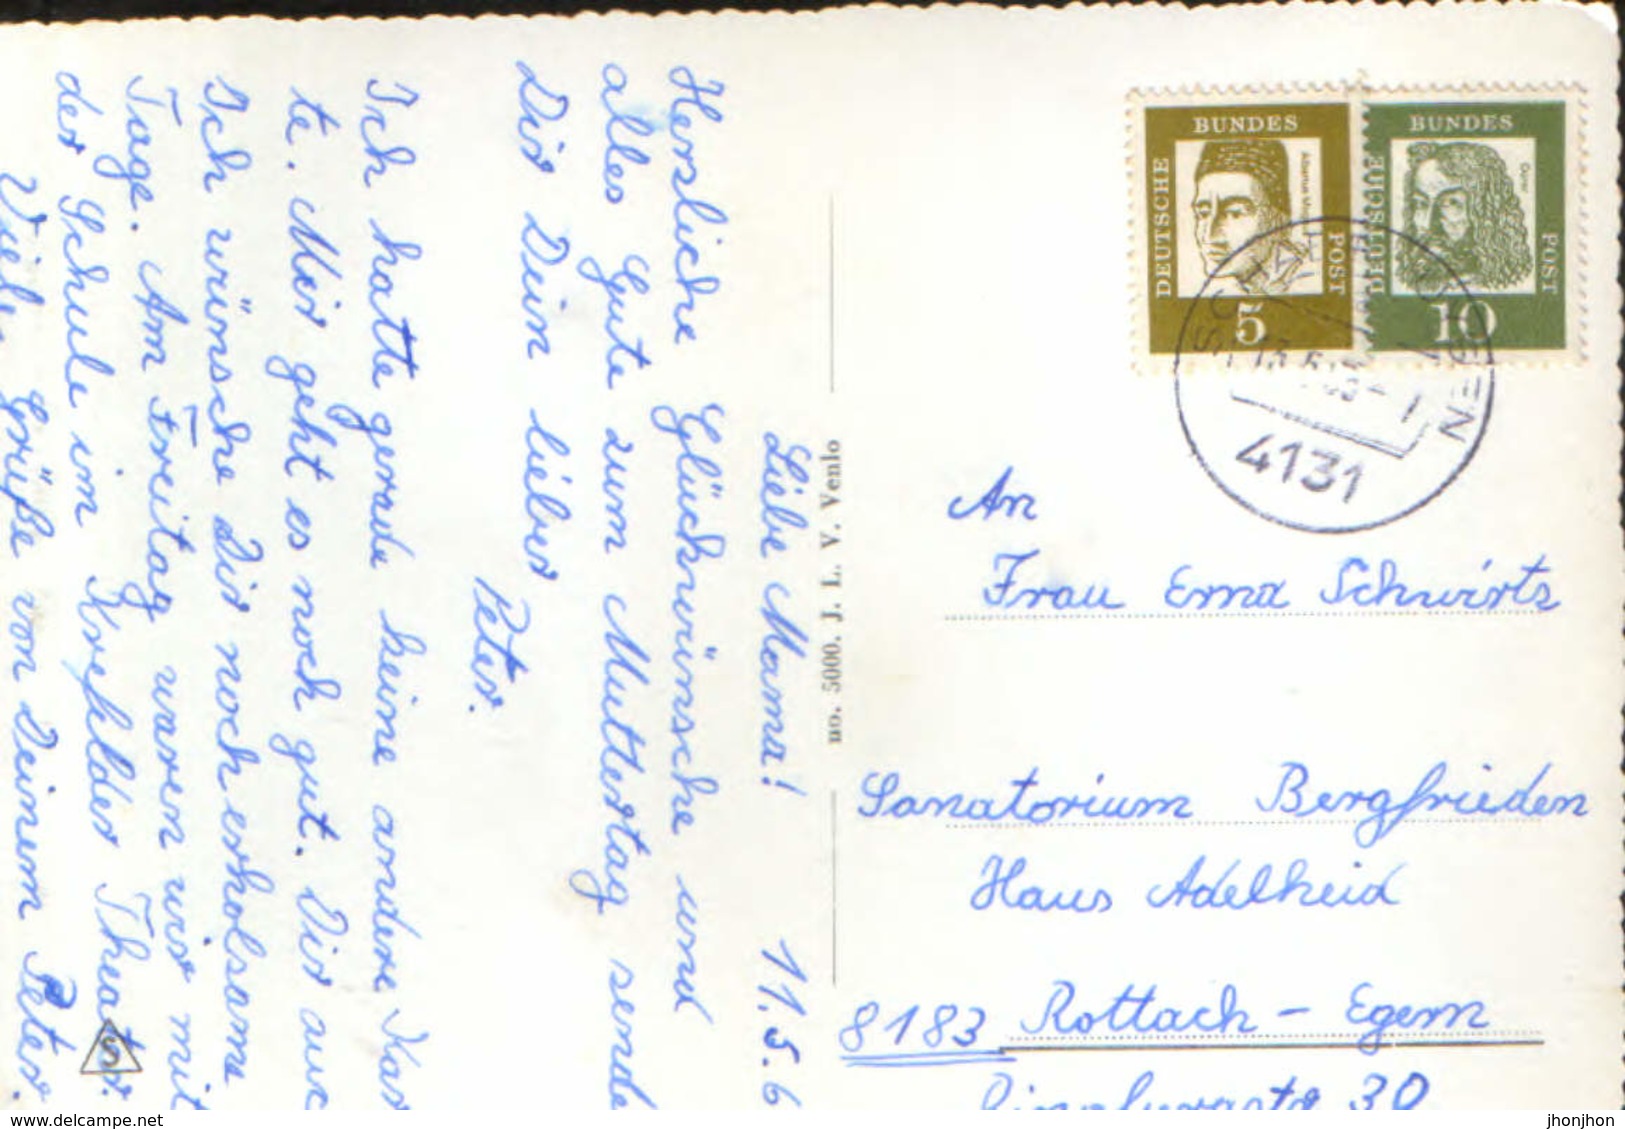 Liebe Mama! 11.5.6
Herzliche Glückwünsche und
alles Gute zum Muttertag sende
Dir Dein lieber
Peter.
Ich hatte gerade keine andere Kar
te. Mir geht es noch gut. Dir auc
Ich wünsche Dir noch erholsame
Tage. Am Freitag waren wir mit
der Schule im Krefelder Theater.
Viele Grüße von Deinem Peter.
no. 5000. J. L. V. Venlo
DEUTSCHE BUNDES POST
Albertus
5
DEUTSCHE BUNDES POST
Dürer
10
4131
An
Frau Erna Schwirtz
Sanatorium Bergfrieden
Haus Adelheid
8183 Rottach-Egern
39
S
delcampe.net
jhonjhon